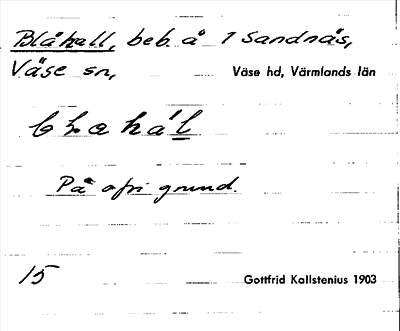 Blåkall, beb. å 1 Sandnäs,
Väse sn, Väse hd, Värmlands län
På ofri grund.
15 Gottfrid Kallstenius 1903